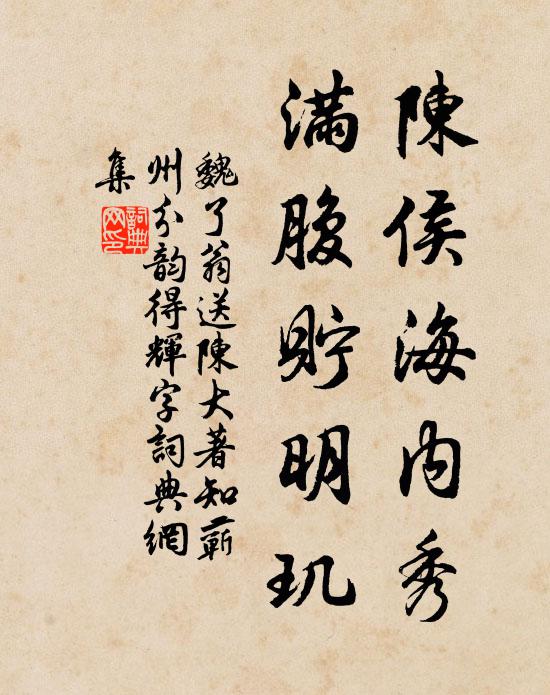 陳侯海内秀
滿腹貯明玑
魏了翁送陳大著知蘄
州分韵得輝字詞典網
集
詞典网印